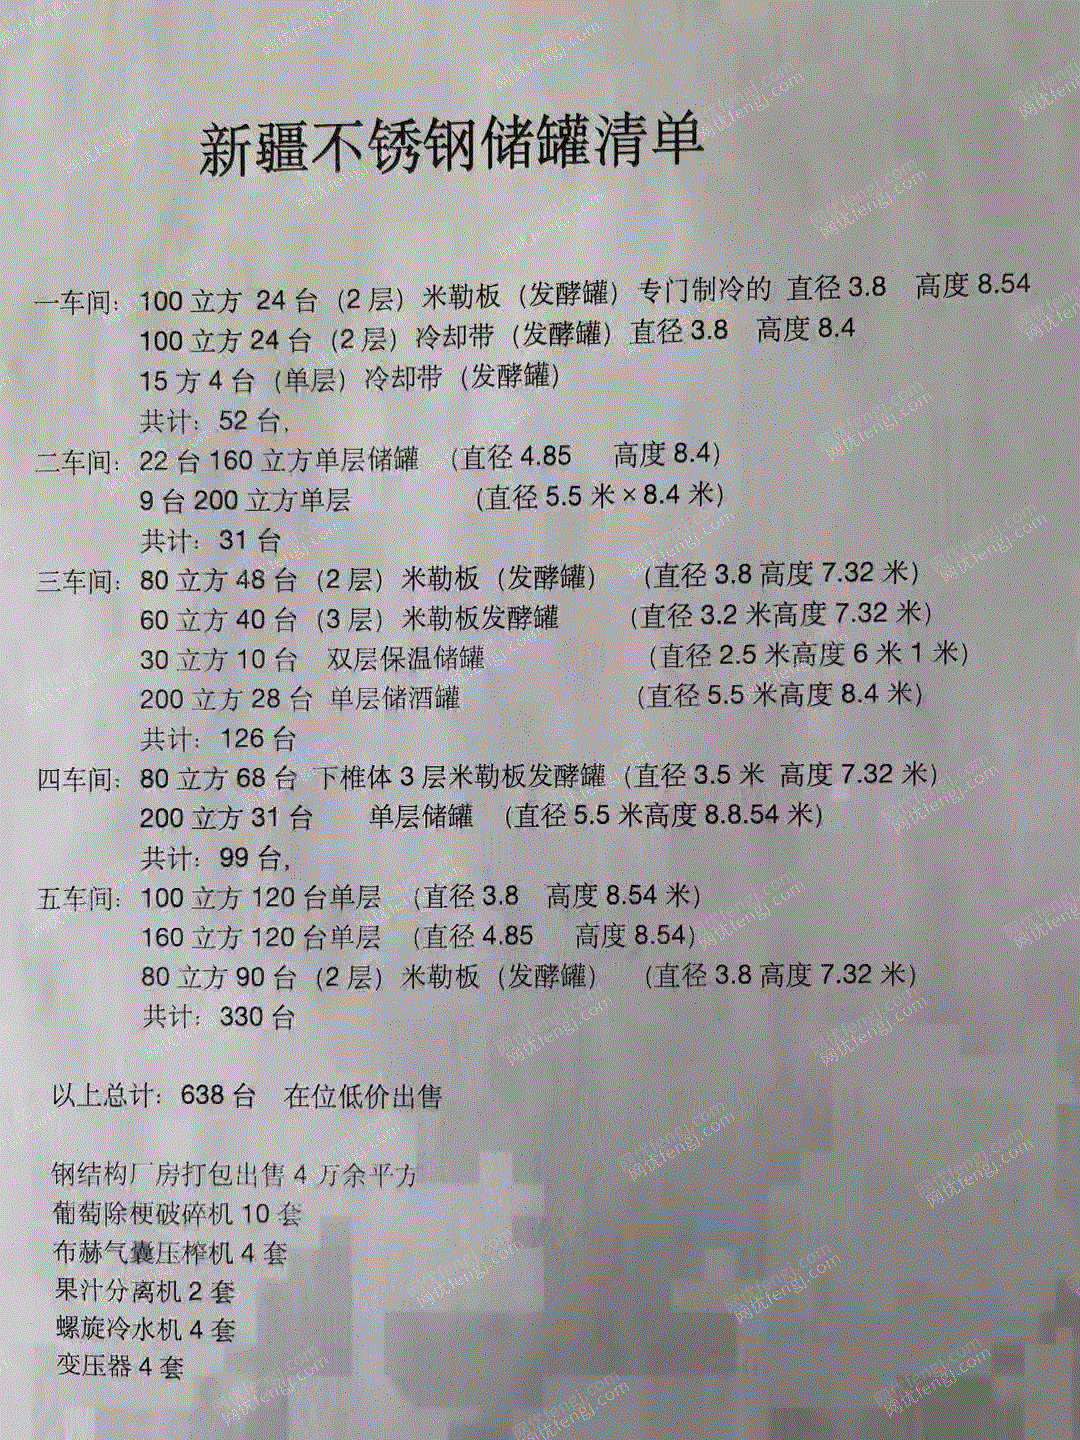 新疆不锈钢储罐清单
一车间：100 立方 24 台（2 层）米勒板（发酵罐）专门制冷的 直径 3.8 高度 8.54
100 立方 24 台（2 层）冷却带（发酵罐）直径 3.8 高度 8.4
15 方 4 台（单层）冷却带（发酵罐）
共计：52 台,
二车间：22 台 160 立方单层储罐 （直径 4.85 高度 8.4）
9 台 200 立方单层 （直径 5.5 米×8.4 米）
共计：31 台
三车间：80 立方 48 台（2 层）米勒板（发酵罐） （直径 3.8 高度 7.32 米）
60 立方 40 台（3 层）米勒板发酵罐 （直径 3.2 米高度 7.32 米）
30 立方 10 台 双层保温储罐 （直径 2.5 米高度 6 米 1 米）
200 立方 28 台 单层储酒罐 （直径 5.5 米高度 8.4 米）
共计：126 台
四车间：80 立方 68 台 下椎体 3 层米勒板发酵罐（直径 3.5 米 高度 7.32 米）
200 立方 31 台 单层储罐 （直径 5.5 米高度 8.8.54 米）
共计：99 台,
五车间：100 立方 120 台单层 （直径 3.8 高度 8.54 米）
160 立方 120 台单层 （直径 4.85 高度 8.54）
80 立方 90 台（2 层）米勒板（发酵罐） （直径 3.8 高度 7.32 米）
共计：330 台
以上总计：638 台 在位低价出售
钢结构厂房打包出售 4 万余平方
葡萄除梗破碎机 10 套
布赫气囊压榨机 4 套
果汁分离机 2 套
螺旋冷水机 4 套
变压器 4 套
网优fengj.com